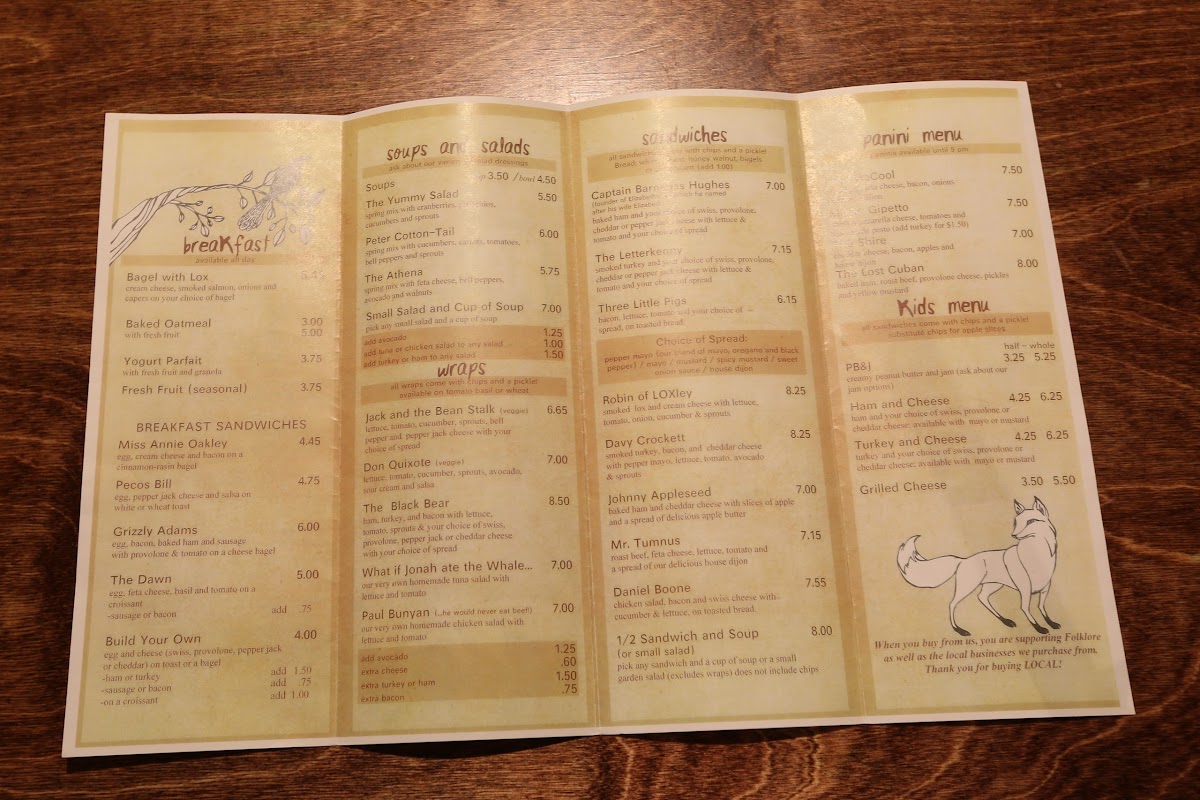 breakfast
available all day
Bagel with Lox
cream cheese, smoked salmon, onions and
capers on your choice of bagel
Baked Oatmeal 3.00
with fresh fruit 5.00
Yogurt Parfait 3.75
with fresh fruit and granola
Fresh Fruit (seasonal) 3.75
BREAKFAST SANDWICHES
Miss Annie Oakley 4.45
egg, cream cheese and bacon on a
cinnamon-rasin bagel
Pecos Bill 4.75
egg, pepper jack cheese and salsa on
white or wheat toast
Grizzly Adams 6.00
egg, bacon, baked ham and sausage
with provolone & tomato on a cheese bagel
The Dawn 5.00
egg, feta cheese, basil and tomato on a
croissant
-sausage or bacon add .75
Build Your Own 4.00
egg and cheese (swiss, provolone, pepper jack
or cheddar) on toast or a bagel
-ham or turkey add 1.50
-sausage or bacon add .75
-on a croissant add 1.00
soups and salads
ask about our salad dressings
Soups 3.50 / bowl 4.50
The Yummy Salad 5.50
spring mix with cranberries,
cucumbers and sprouts
Peter Cotton-Tail 6.00
spring mix with cucumbers, carrots, tomatoes,
bell peppers and sprouts
The Athena 5.75
spring mix with feta cheese, bell peppers,
avocado and walnuts
Small Salad and Cup of Soup 7.00
pick any small salad and a cup of soup
add avocado 1.25
add tuna or chicken salad to any salad 1.00
add turkey or ham to any salad 1.50
wraps
all wraps come with chips and a pickle!
available on tomato basil or wheat
Jack and the Bean Stalk (veggie) 6.65
lettuce, tomato, cucumber, sprouts, bell
pepper and pepper jack cheese with your
choice of spread
Don Quixote (veggie) 7.00
lettuce, tomato, cucumber, sprouts, avocado,
sour cream and salsa
The Black Bear 8.50
ham, turkey, and bacon with lettuce,
tomato, sprouts & your choice of swiss,
provolone, pepper jack or cheddar cheese
with your choice of spread
What if Jonah ate the Whale... 7.00
our very own homemade tuna salad with
lettuce and tomato
Paul Bunyan (...he would never eat beef!) 7.00
our very own homemade chicken salad with
lettuce and tomato
add avocado 1.25
extra cheese .60
extra turkey or ham 1.50
extra bacon .75
sandwiches
all sandwiches come with chips and a pickle!
Bread: honey walnut, bagels
(add 1.00)
Captain Barnabas Hughes 7.00
(founder of which he named
after his wife Elizabeth)
baked ham and your choice of swiss, provolone,
cheddar or pepper jack cheese with lettuce &
tomato and your choice of spread
The Letterkenny 7.15
smoked turkey and your choice of swiss, provolone,
cheddar or pepper jack cheese with lettuce &
tomato and your choice of spread
Three Little Pigs 6.15
bacon, lettuce, tomato and your choice of
spread, on toasted bread
Choice of Spread:
pepper mayo (our blend of mayo, oregano and black
pepper) / mayo / mustard / spicy mustard / sweet
onion sauce / house dijon
Robin of LOXley 8.25
smoked lox and cream cheese with lettuce,
tomato, onion, cucumber & sprouts
Davy Crockett 8.25
smoked turkey, bacon, and cheddar cheese
with pepper mayo, lettuce, tomato, avocado
& sprouts
Johnny Appleseed 7.00
baked ham and cheddar cheese with slices of apple
and a spread of delicious apple butter
Mr. Tumnus 7.15
roast beef, feta cheese, lettuce, tomato and
a spread of our delicious house dijon
Daniel Boone 7.55
chicken salad, bacon and swiss cheese with
cucumber & lettuce, on toasted bread
1/2 Sandwich and Soup 8.00
(or small salad)
pick any sandwich and a cup of soup or a small
garden salad (excludes wraps) does not include chips
panini menu
available until 9 pm
7.50
cheese, bacon, onions
Gipetto 7.50
cheese, tomatoes and
(add turkey for $1.50)
Shire 7.00
cheese, bacon, apples and
The Lost Cuban 8.00
baked ham, roast beef, provolone cheese, pickles
and yellow mustard
Kids menu
all sandwiches come with chips and a pickle!
substitute chips for apple slices
half - whole
PB&J 3.25 5.25
creamy peanut butter and jam (ask about our
jam options)
Ham and Cheese 4.25 6.25
ham and your choice of swiss, provolone or
cheddar cheese; available with mayo or mustard
Turkey and Cheese 4.25 6.25
turkey and your choice of swiss, provolone or
cheddar cheese; available with mayo or mustard
Grilled Cheese 3.50 5.50
When you buy from us, you are supporting Folklore
as well as the local businesses we purchase from.
Thank you for buying LOCAL!